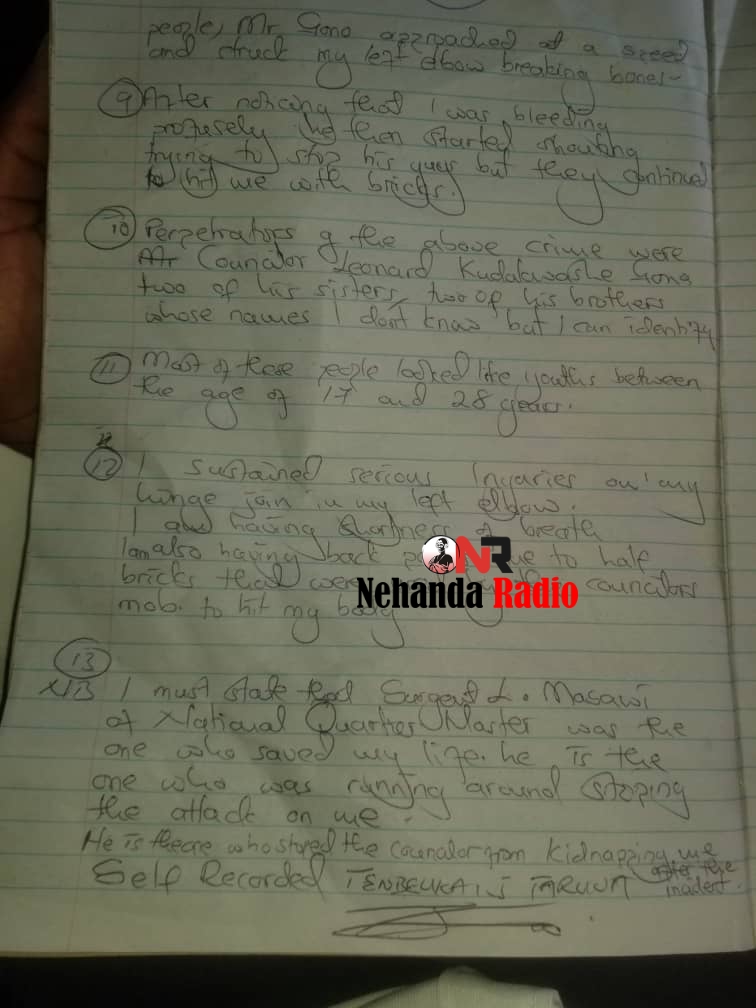 people, Mr Gono approached at a speed
and struck my left elbow breaking bones-
9 After noticing that I was bleeding
profusely he then started shouting
trying to stop his guys but they continued
to hit me with bricks.
10 Perpetrators of the above crime were
Mr Councalor Leonard Kudakwashe Gono
two of his sisters, two of his brothers
whose names I don't know but I can identify
11 Most of these people looked like youths between
the age of 17 and 28 years.
12 I sustained serious Injuries on my
hinge join in my left elbow.
I am having shortness of breath
I am also having back to half
bricks that were councalors
mob. to hit my body
NR
Nehanda Radio
13
I must state that Surgent L. Masawi
of National Quarter Master was the
one who saved my life. he is the
one who was running around stoping
the attack on me.
He is the one who stoped the councalor from kidnapping me
after the
Self Recorded
incident.